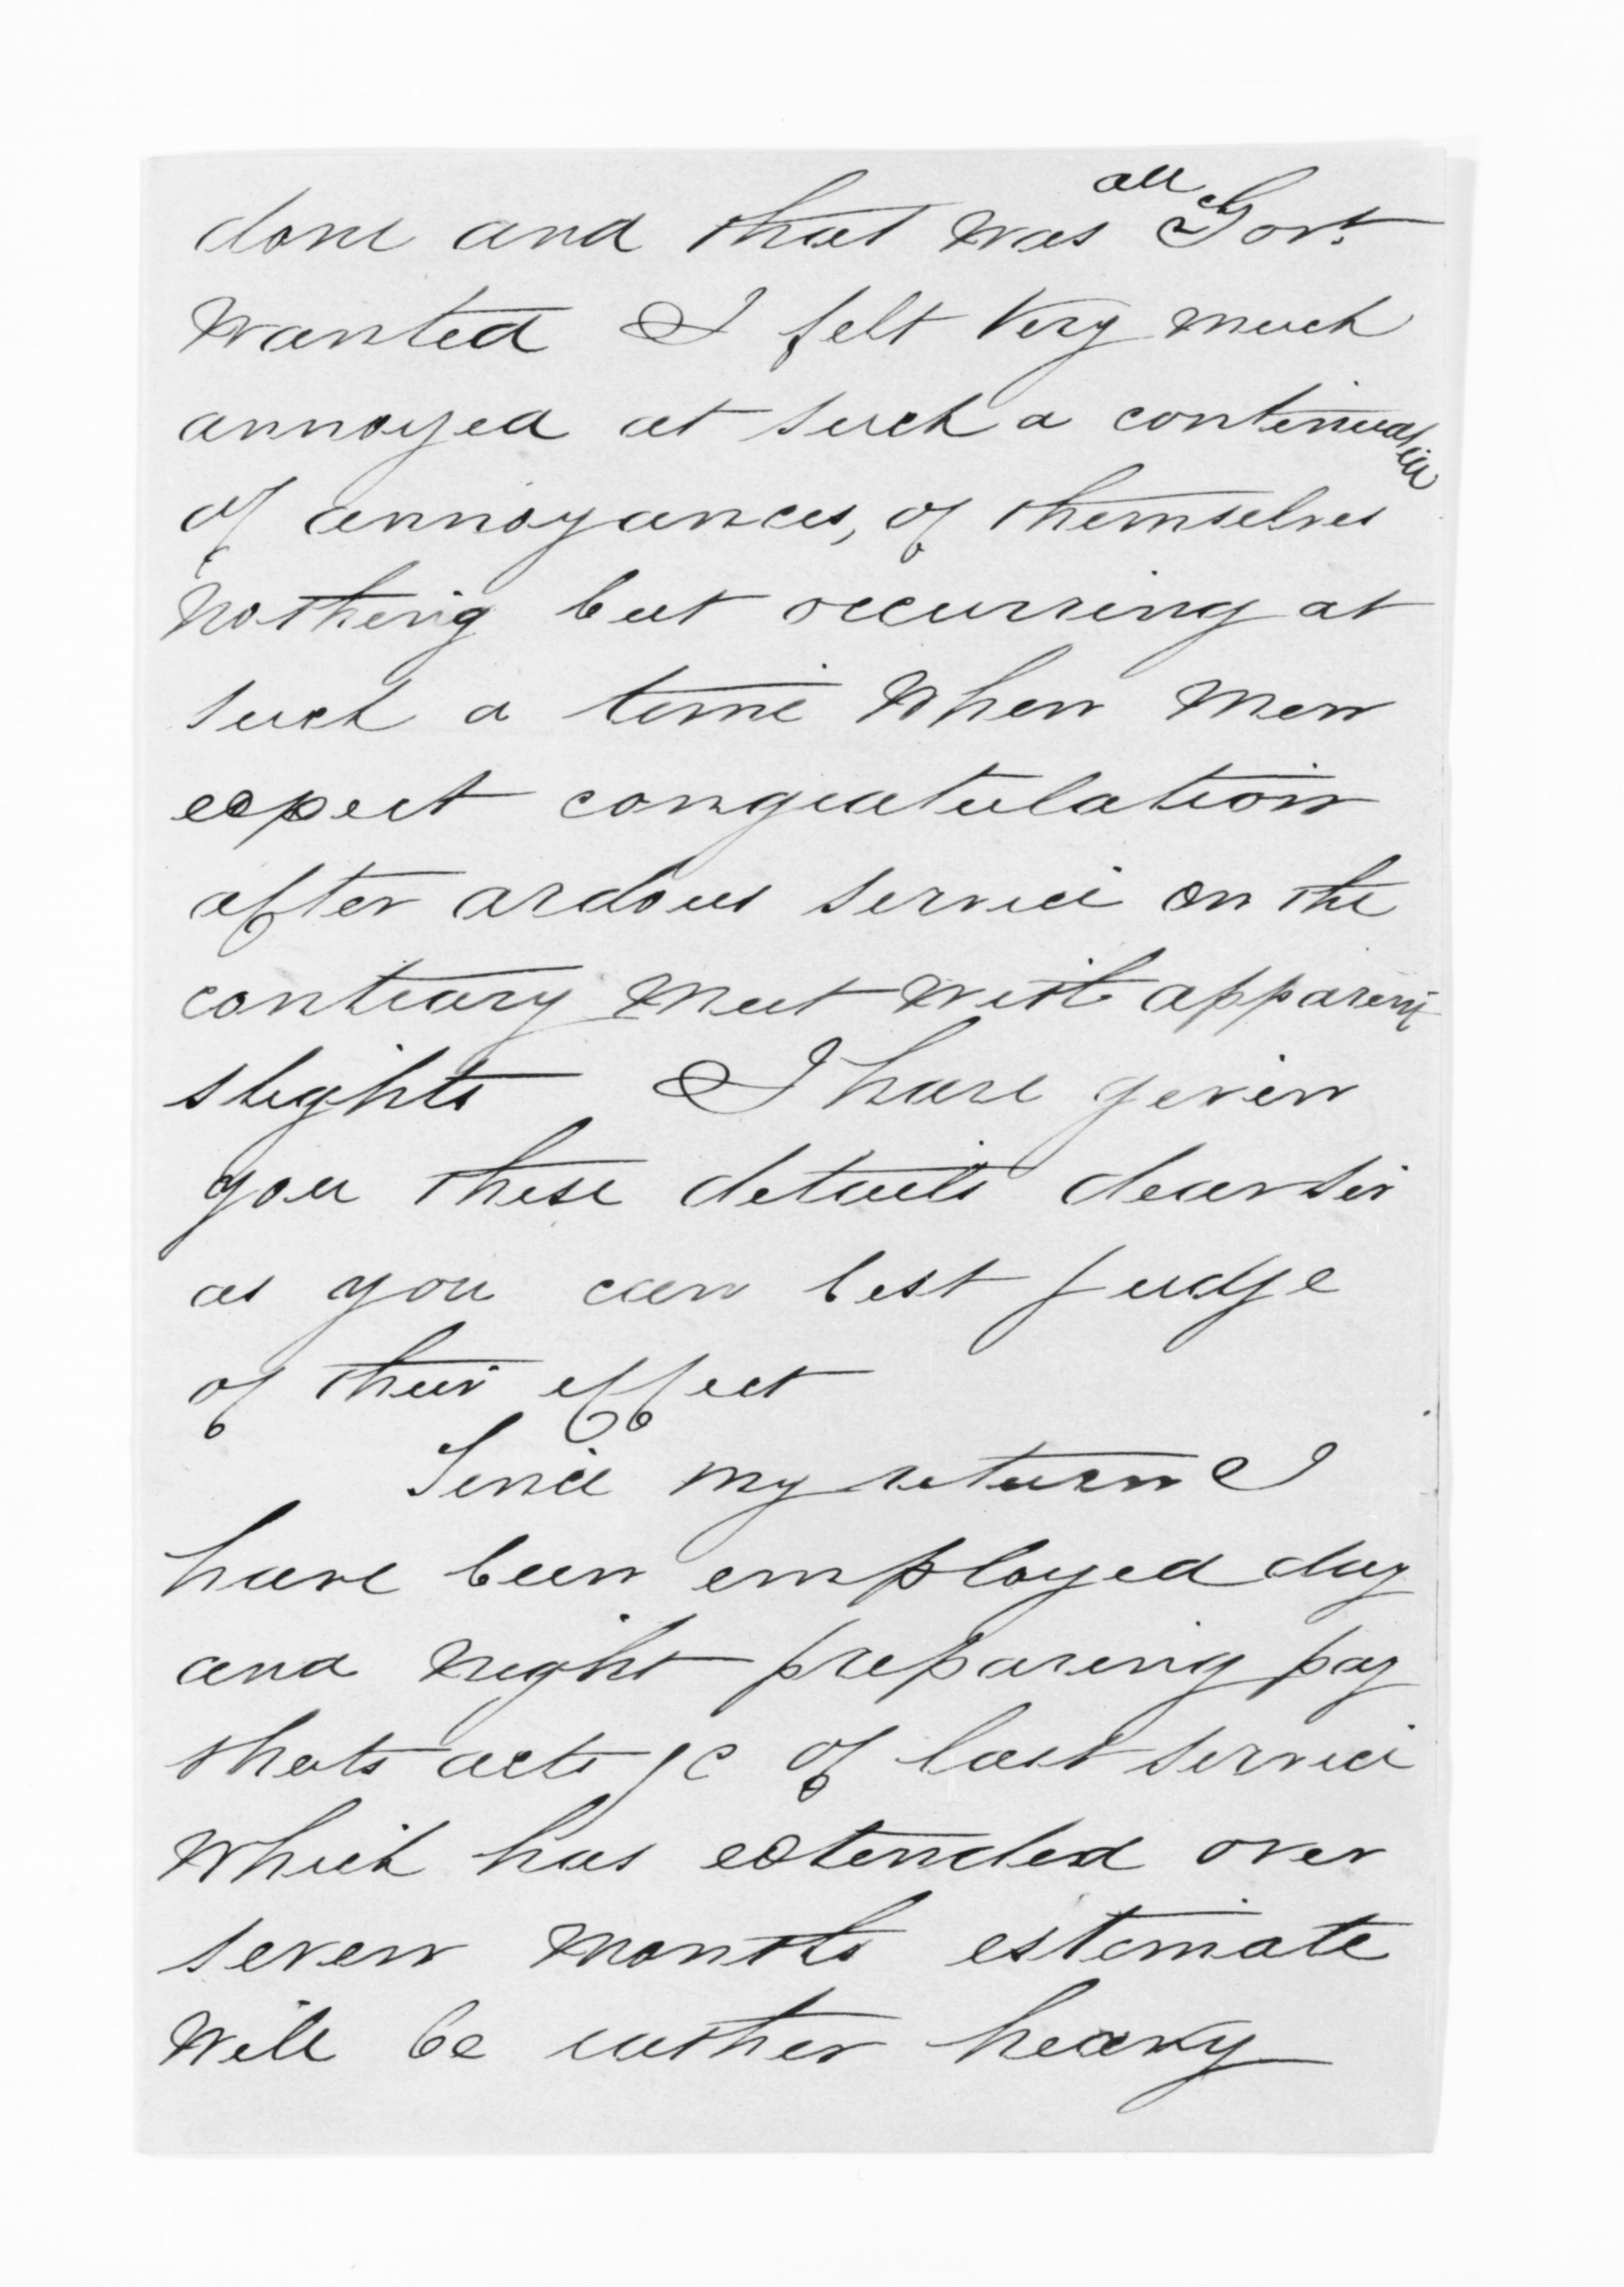 done and that was all Govt.
wanted I felt very much
annoyed at such a continuation
of annoyances, of themselves
nothing but occurring at
such a time when men
expect congratulation
after ardous service on the
contrary meet with apparent
slights I have given
you these details dear sir
as you can best judge
of their effect
Since my return I
have been employed day
and night preparing pay
sheets accts &c of last service
which has extended over
seven months estimate
will be rather heavy